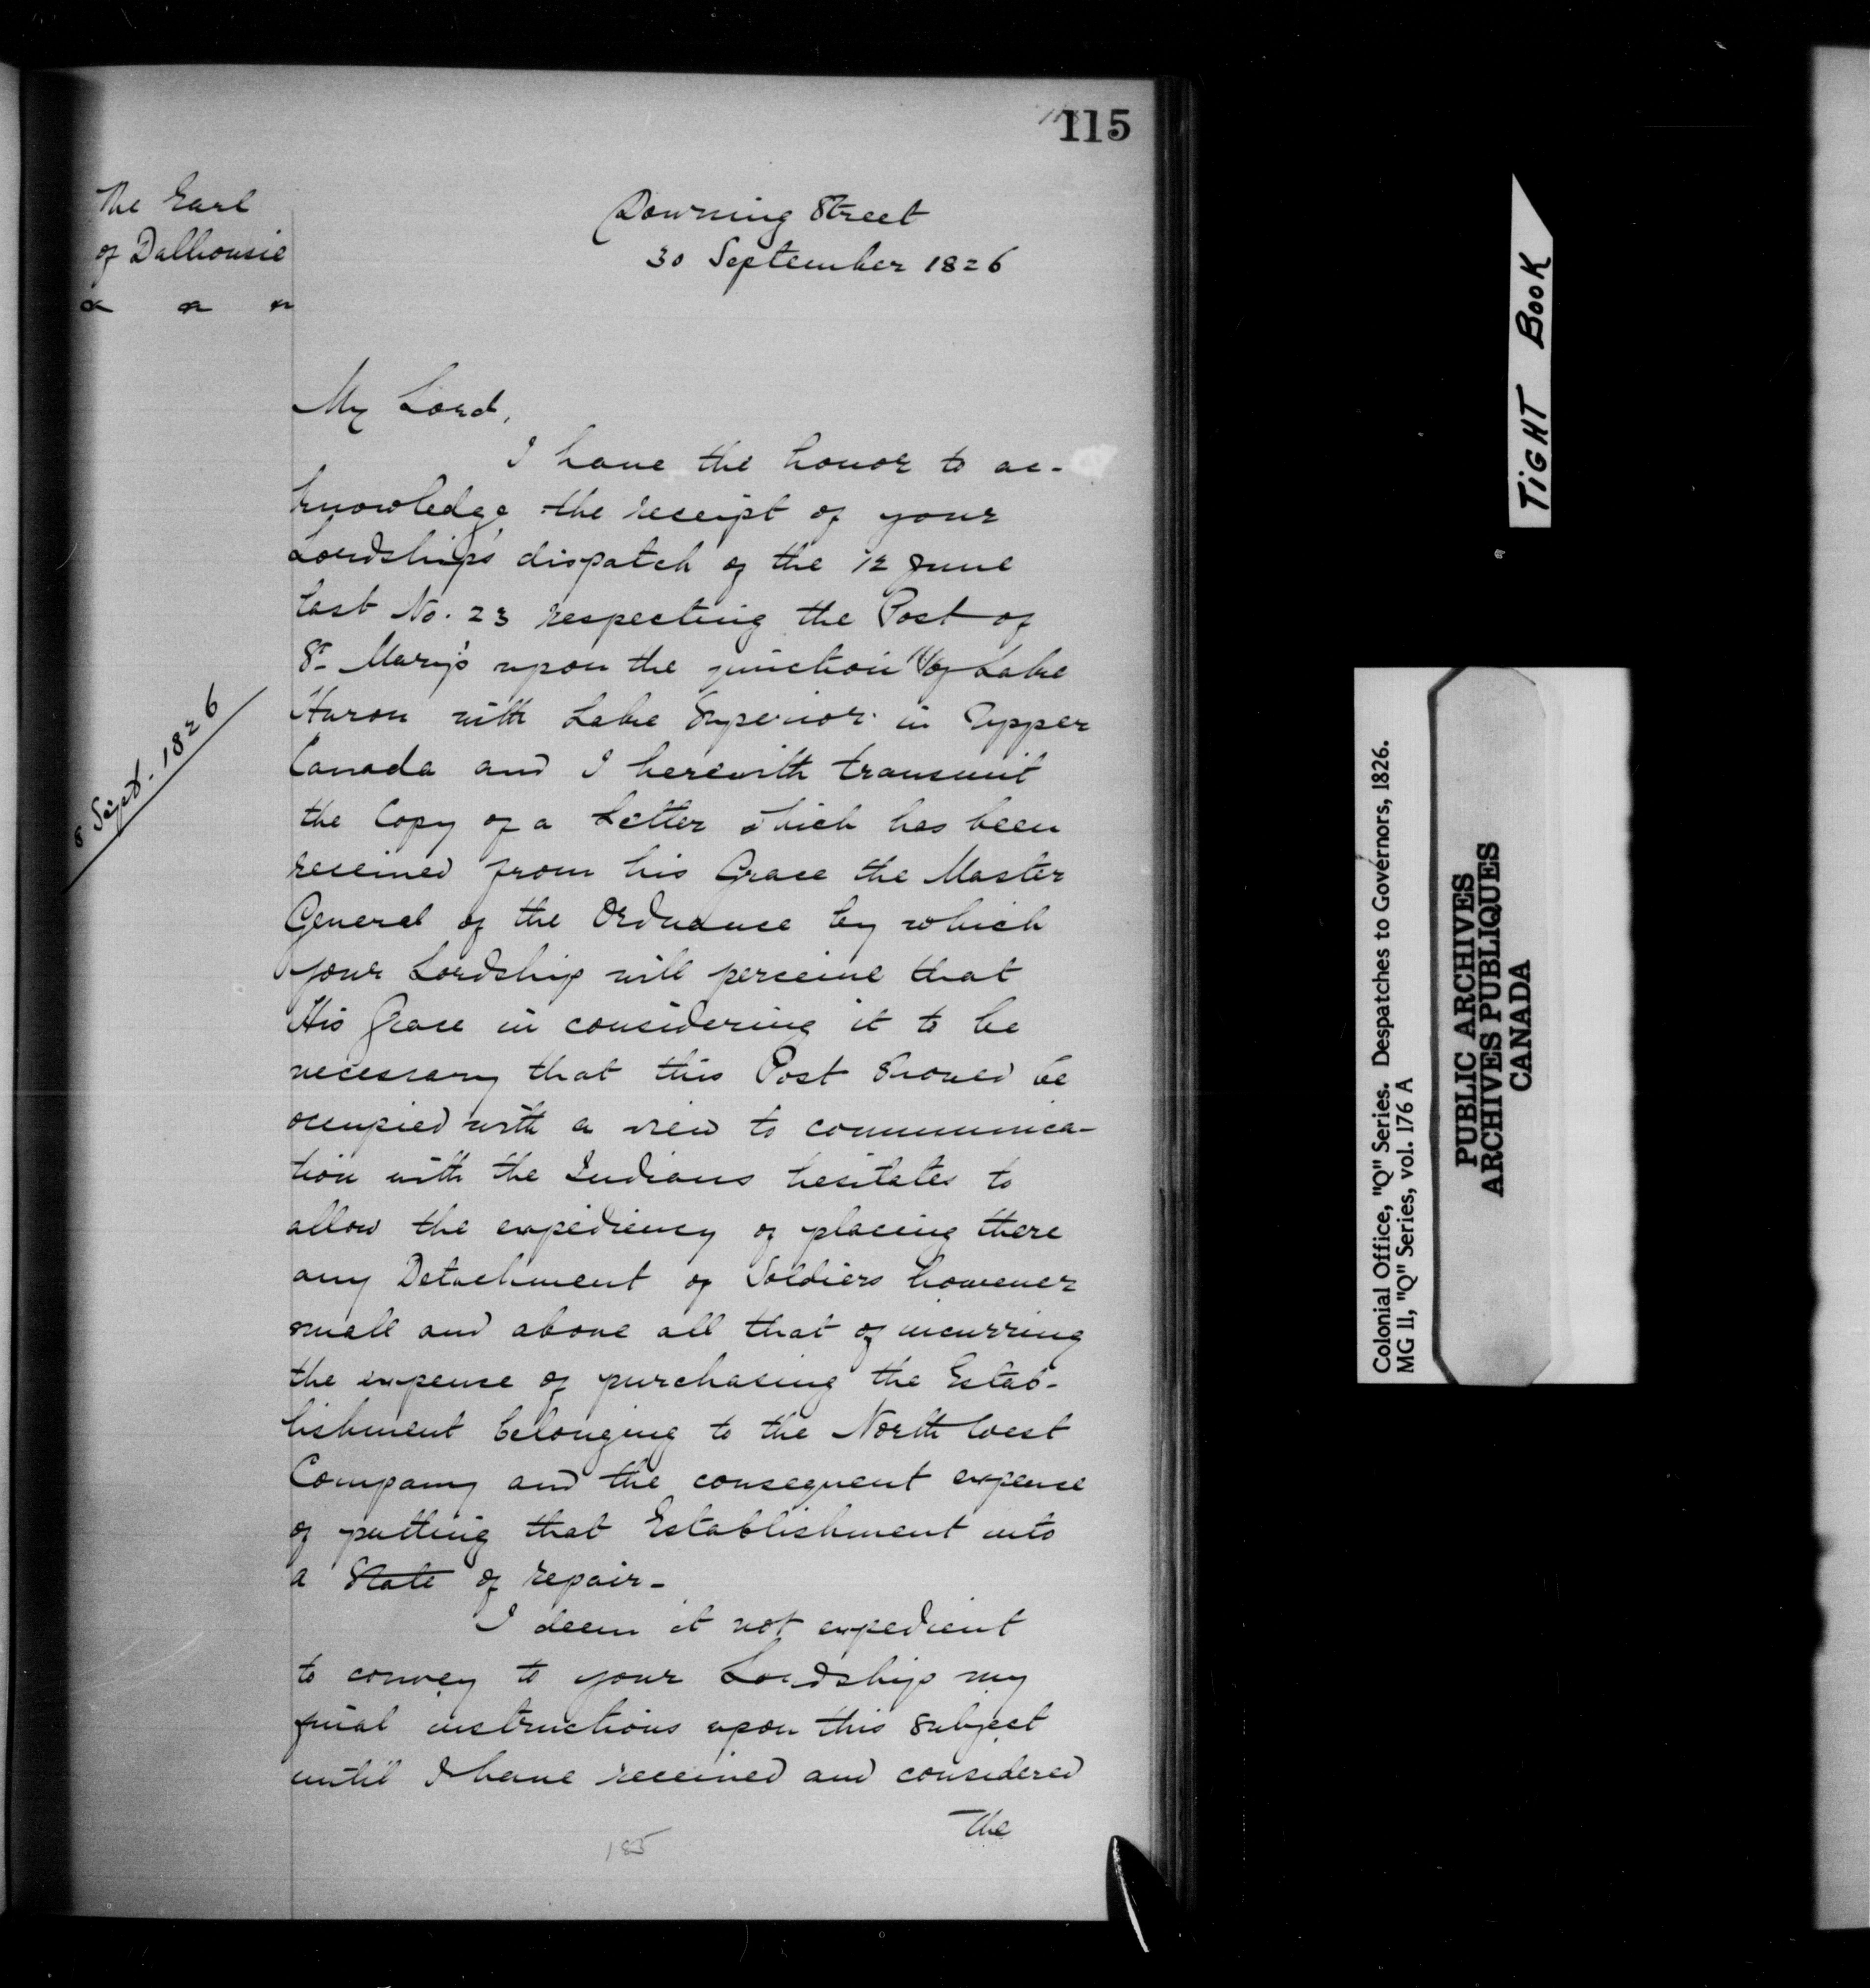 115
The Earl
of Dalhousie
Downing Street
30 September 1826
My Lord,
I have the honor to ac-
knowledge the receipt of your
Lordship's dispatch of the 12 June
last No. 23 respecting the Post of
St. Mary's upon the junction of Lake
Huron with Lake Superior in Upper
Canada and I herewith transmit
8 Sept. 1826
the Copy of a Letter which has been
received from his Grace the Master
General of the Ordnance by which
your Lordship will perceive that
His Grace in considering it to be
necessary that this Post should be
occupied with a view to communica-
tion with the Indians hesitates to
allow the expediency of placing there
any Detachment of Soldiers however
small and above all that of incurring
the expense of purchasing the Estab-
lishment belonging to the North West
Company and the consequent expense
of putting that Establishment into
a State of repair-
I deem it not expedient
to convey to your Lordship my
final instructions upon this subject
until I have received and considered
The
185
TIGHT BOOK
Colonial Office, "Q" Series. Despatches to Governors, 1826.
MG 11, "Q" Series, vol. 176 A
PUBLIC ARCHIVES
ARCHIVES PUBLIQUES
CANADA